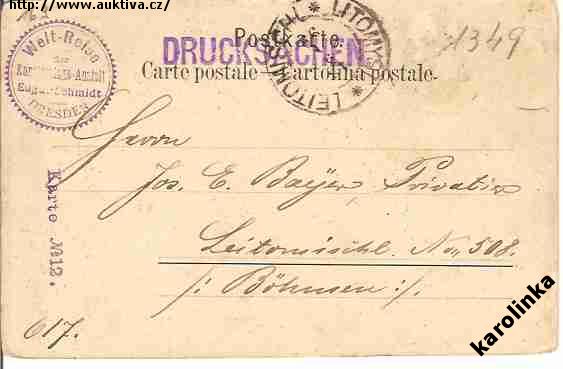 http://www.auktiva.cz/
Postkarte.
DRUCKSACHEN
Carte postale — Cartolina postale.
LITOMYŠL * LEITOMISCHL *
1349
Welt-Reise
der
Anstalt
Eugen Schmidt
DRESDEN
Karte № 12.
Herrn
Jos. E. Bayer, Privatier
Leitomischl. No. 508.
/: Böhmen :/.
617.
karolinka